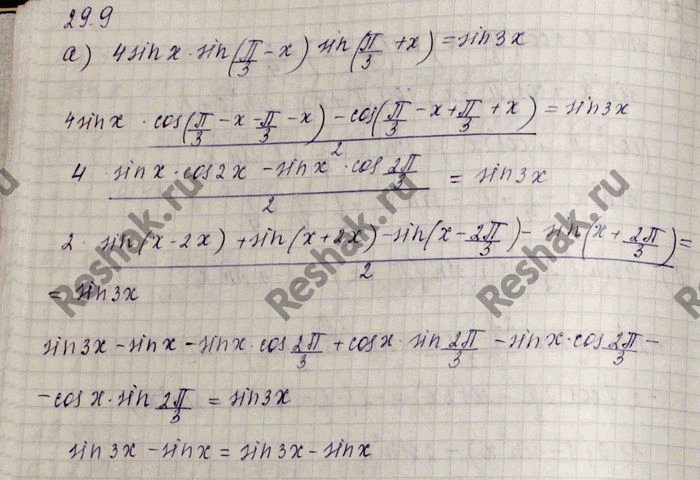 29.9
а) 4sinx · sin(π/3 - x) sin(π/3 + x) = sin3x
4sinx · (cos(π/3 - x - π/3 - x) - cos(π/3 - x + π/3 + x))/2 = sin3x
4 · (sinx · cos2x - sinx · cos 2π/3)/2 = sin3x
2 · (sin(x - 2x) + sin(x + 2x) - sin(x - 2π/3) - sin(x + 2π/3))/2 =
= sin3x
sin3x - sinx - sinx · cos 2π/3 + cosx · sin 2π/3 - sinx · cos 2π/3 -
- cosx · sin 2π/3 = sin3x
sin3x - sinx = sin3x - sinx
Reshak.ru
Reshak.ru
Reshak.ru